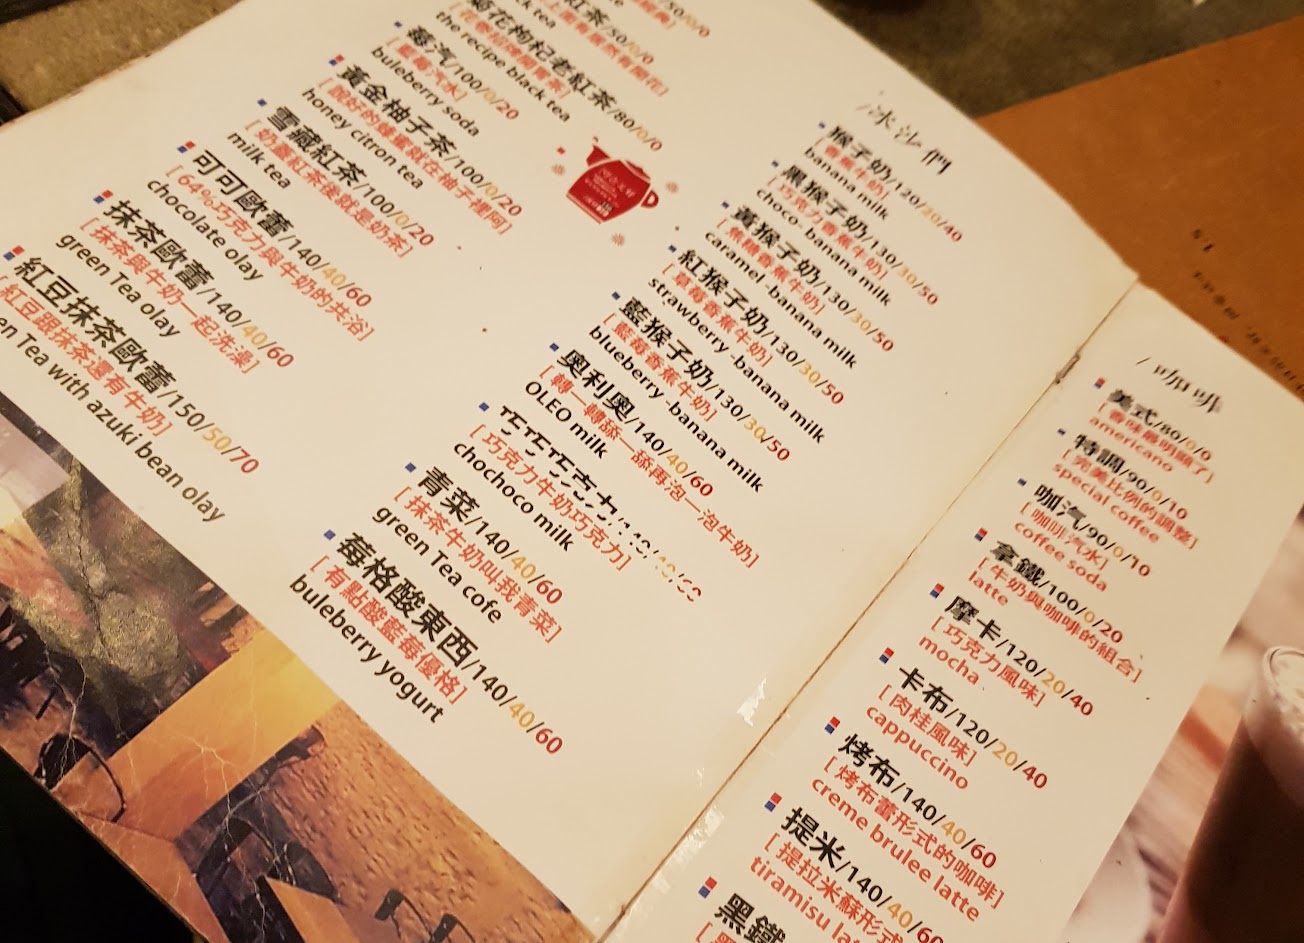 紅茶/50/0/0
ck tea
菊花枸杞老紅茶/80/0/0
[花巷招牌開胃茶]
the recipe black tea
莓汽/100/0/20
[藍莓汽水]
buleberry soda
黃金柚子茶/100/0/20
[說好的蜂蜜就在柚子裡阿]
honey citron tea
雪藏紅茶/100/0/20
[奶蓋紅茶後就是奶茶]
milk tea
可可歐蕾/140/40/60
[64%巧克力與牛奶的共浴]
chocolate olay
抹茶歐蕾/140/40/60
[抹茶與牛奶一起洗澡]
green Tea olay
紅豆抹茶歐蕾/150/50/70
[紅豆跟抹茶還有牛奶]
en Tea with azuki bean olay
冰沙們
猴子奶/120/20/40
[香蕉牛奶]
banana milk
黑猴子奶/130/30/50
[巧克力香蕉牛奶]
choco- banana milk
黃猴子奶/130/30/50
[焦糖香蕉牛奶]
caramel -banana milk
紅猴子奶/130/30/50
[草莓香蕉牛奶]
strawberry -banana milk
藍猴子奶/130/30/50
[藍莓香蕉牛奶]
blueberry -banana milk
奧利奧/140/40/60
[轉一轉舔一舔再泡一泡牛奶]
OLEO milk
巧巧巧克力/140/40/60
[巧克力牛奶巧克力]
chochoco milk
青菜/140/40/60
[抹茶牛奶叫我青菜]
green Tea cofe
莓格酸東西/140/40/60
[有點酸藍莓優格]
buleberry yogurt
咖啡
美式/80/0/0
[香味最明顯了]
americano
特調/90/0/10
[完美比例的調整]
special coffee
咖汽/90/0/10
[咖啡汽水]
coffee soda
拿鐵/100/0/20
[牛奶與咖啡的組合]
latte
摩卡/120/20/40
[巧克力風味]
mocha
卡布/120/20/40
[肉桂風味]
cappuccino
烤布/140/40/60
[烤布蕾形式的咖啡]
creme brulee latte
提米/140/40/60
[提拉米蘇形式
tiramisu la
黑鐵